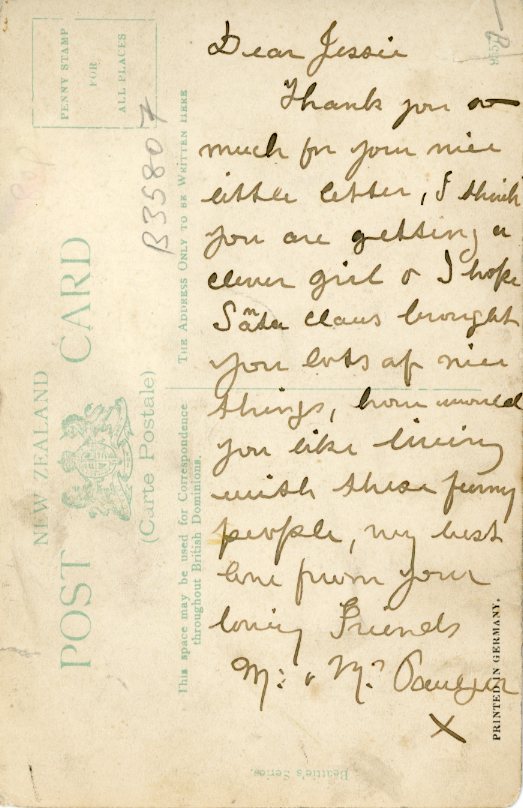 Dear Jessie
Thank you so
much for your nice
little letter, I think
you are getting a
clever girl & I hope
Santa Claus brought
you lots of nice
things, how would
you like living
with these funny
people, my best
love from your
loving Friends
Mr & Mrs
X
PENNY STAMP
FOR
ALL PLACES
B35807
NEW ZEALAND
POST CARD
(Carte Postale)
THE ADDRESS ONLY TO BE WRITTEN HERE
This space may be used for Correspondence
throughout British Dominions.
PRINTED IN GERMANY.
Beattie's Series.